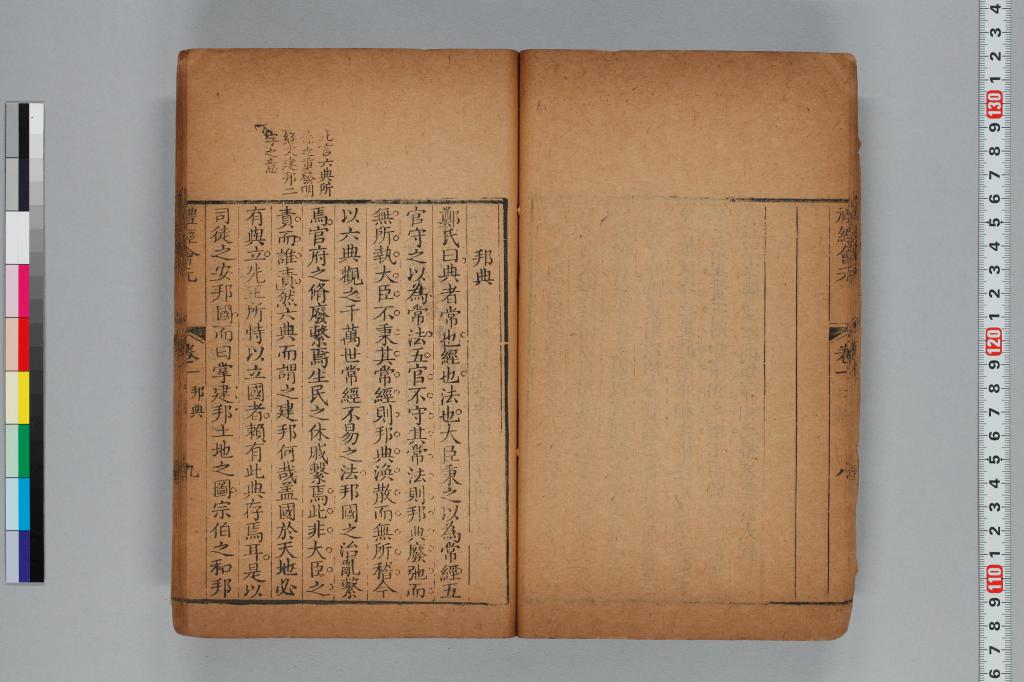 禮經會元
卷一
八
此言六典所
係之重發明
經文建邦二
字之意
邦典
鄭氏曰典者常也經也法也大臣秉之以為常經五
官守之以為常法五官不守其常法則邦典廢弛而
無所執大臣不秉其常經則邦典渙散而無所稽今
以六典觀之千萬世常經不易之法邦國之治亂繫
焉官府之脩廢繫焉生民之休戚繫焉此非大臣之
責而誰責然六典而謂之建邦何哉盖國於天地必
有與立先王所恃以立國者賴有此典存焉耳是以
司徒之安邦國而曰掌建邦土地之圖宗伯之和邦
禮經會元
卷一
邦典
九